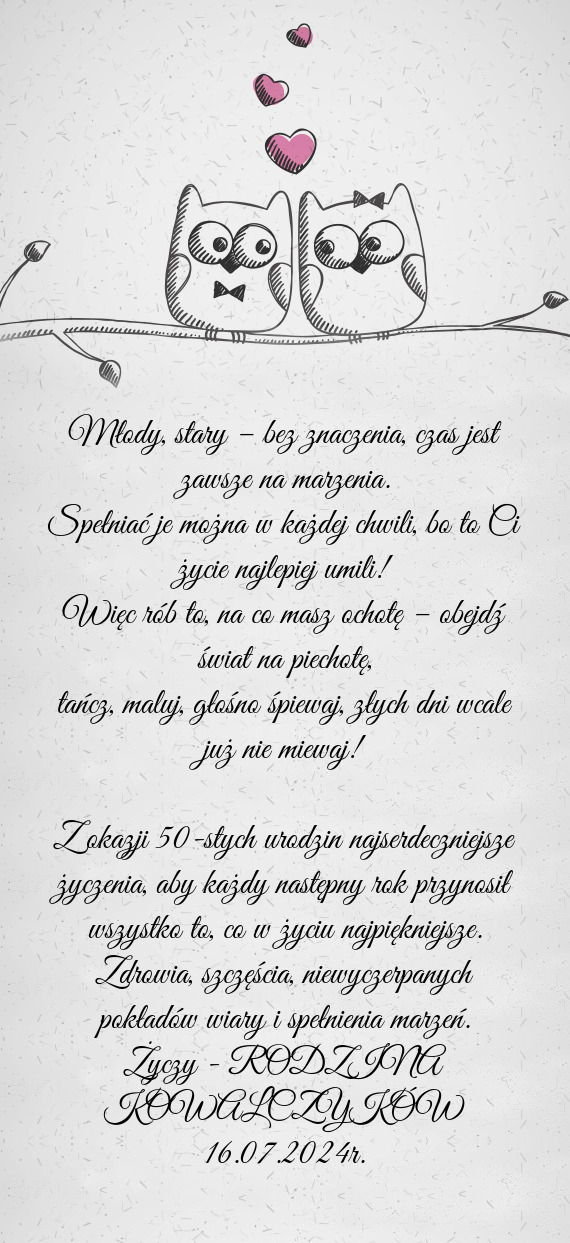 Młody, stary – bez znaczenia, czas jest
zawsze na marzenia.
Spełniać je można w każdej chwili, bo to Ci
życie najlepiej umili!
Więc rób to, na co masz ochotę – obejdź
świat na piechotę,
tańcz, maluj, głośno śpiewaj, złych dni wcale
już nie miewaj!
Z okazji 50-stych urodzin najserdeczniejsze
życzenia, aby każdy następny rok przynosił
wszystko to, co w życiu najpiękniejsze.
Zdrowia, szczęścia, niewyczerpanych
pokładów wiary i spełnienia marzeń.
Życzy - RODZINA
KOWALCZYKÓW
16.07.2024r.